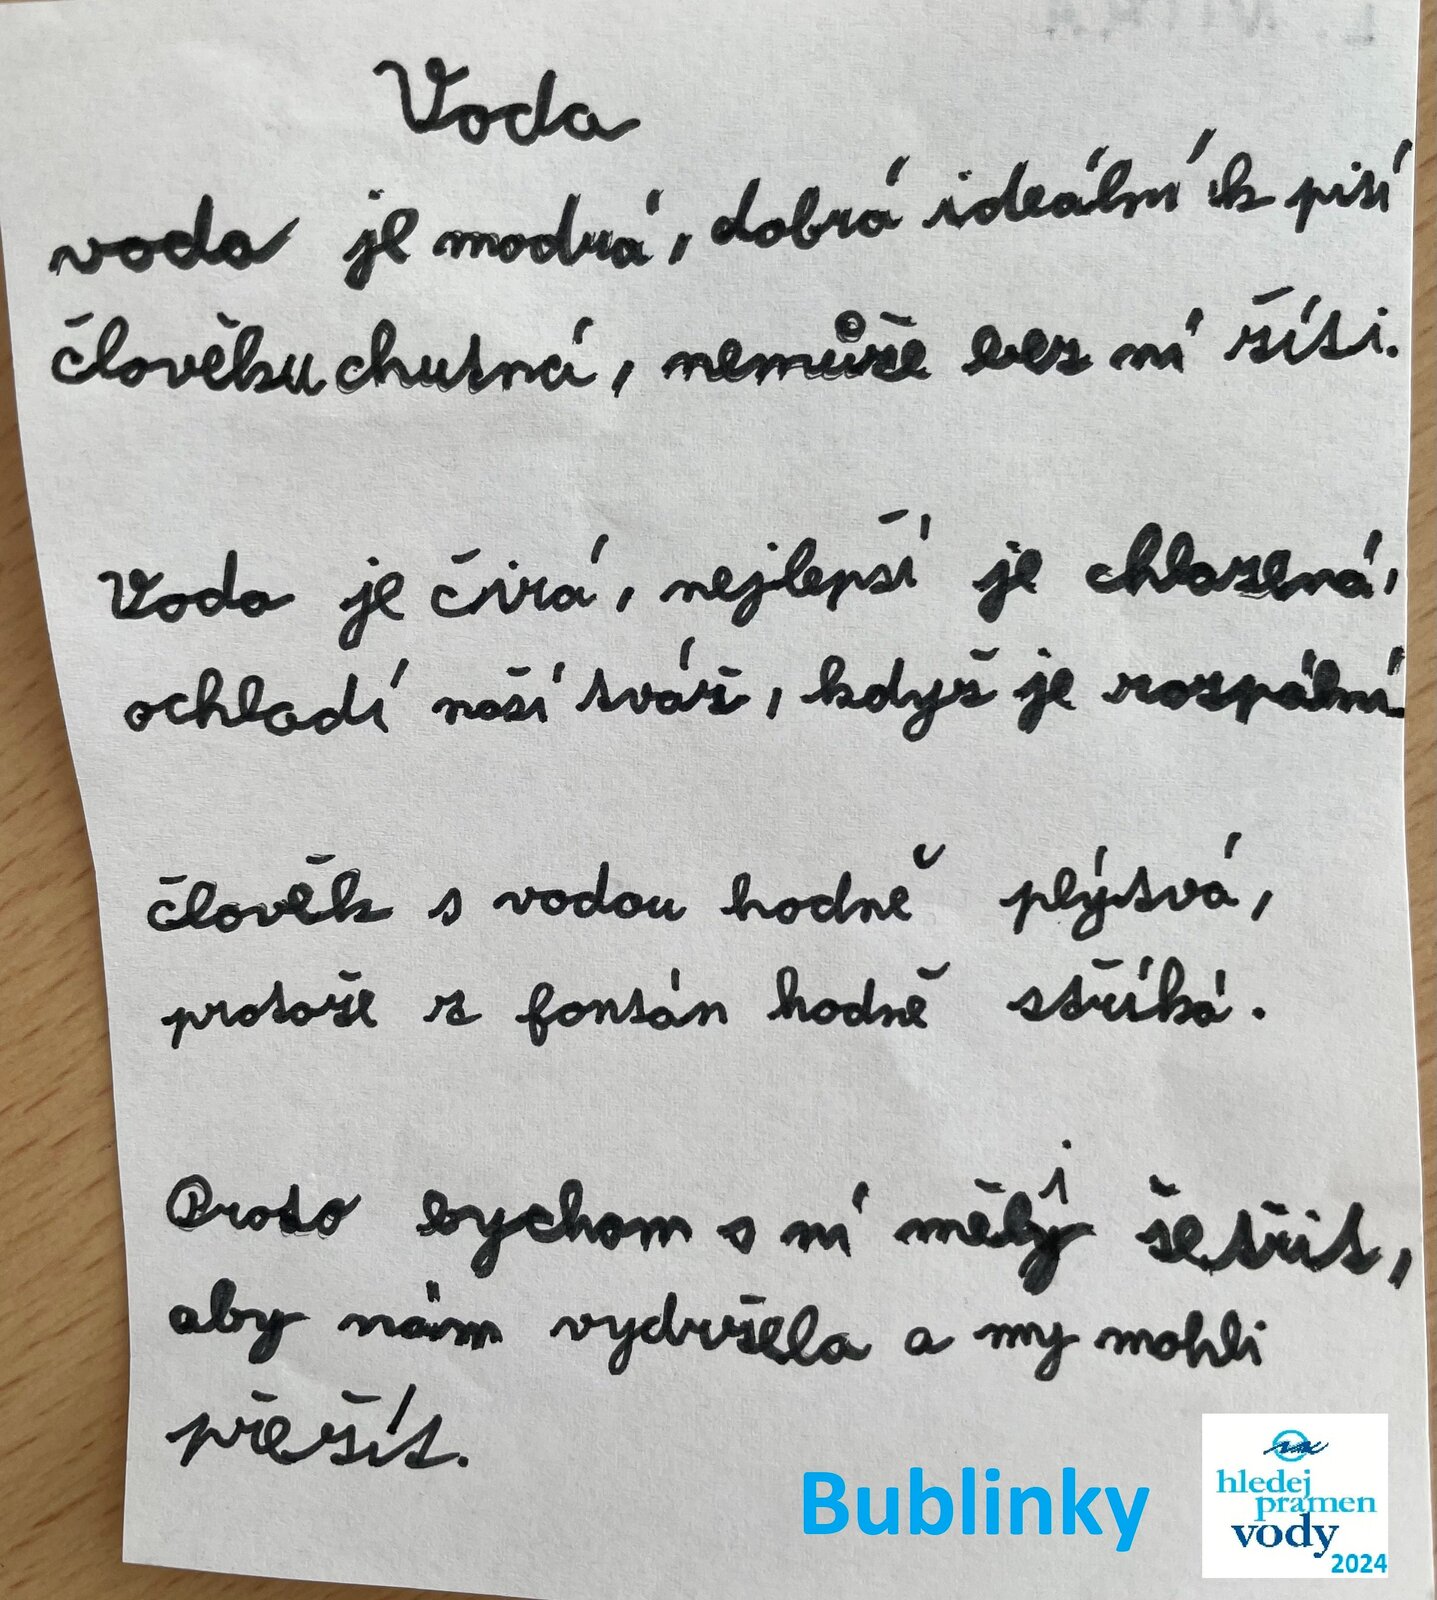 Voda
voda je modrá, dobrá ideální k pití
člověku chutná, nemůže bez ní žíti.
Voda je čirá, nejlepší je chlazená,
ochladí naší tvář, když je rozpální
člověk s vodou hodně plýtvá,
protože z fontán hodně stříká.
Proto bychom s ní měly šetřit,
aby nám vydržela a my mohli
přežít.
Bublinky
hledej
pramen
vody
2024